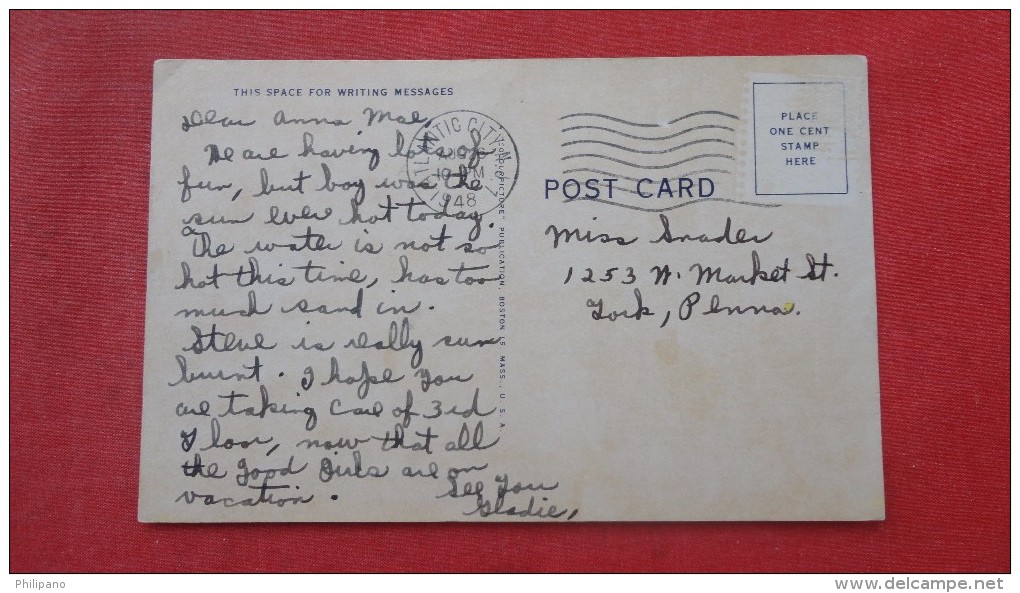 THIS SPACE FOR WRITING MESSAGES
Dear Anna Mae,
We are having lots of
fun, but boy was the
sun ever hot today.
The water is not so
hot this time, has too
much sand in.
Steve is really sun
burnt. I hope you
are taking care of 3rd
Floor, now that all
the good Girls are on
vacation.
See You
Gladie,
ATLANTIC CITY, N.J.
AUG
PM
1948
"COLOURPICTURE" PUBLICATION, BOSTON 15, MASS., U.S.A.
PLACE
ONE CENT
STAMP
HERE
POST CARD
Miss Snader
1253 W. Market St.
York, Penna.
Philipano
www.delcampe.net